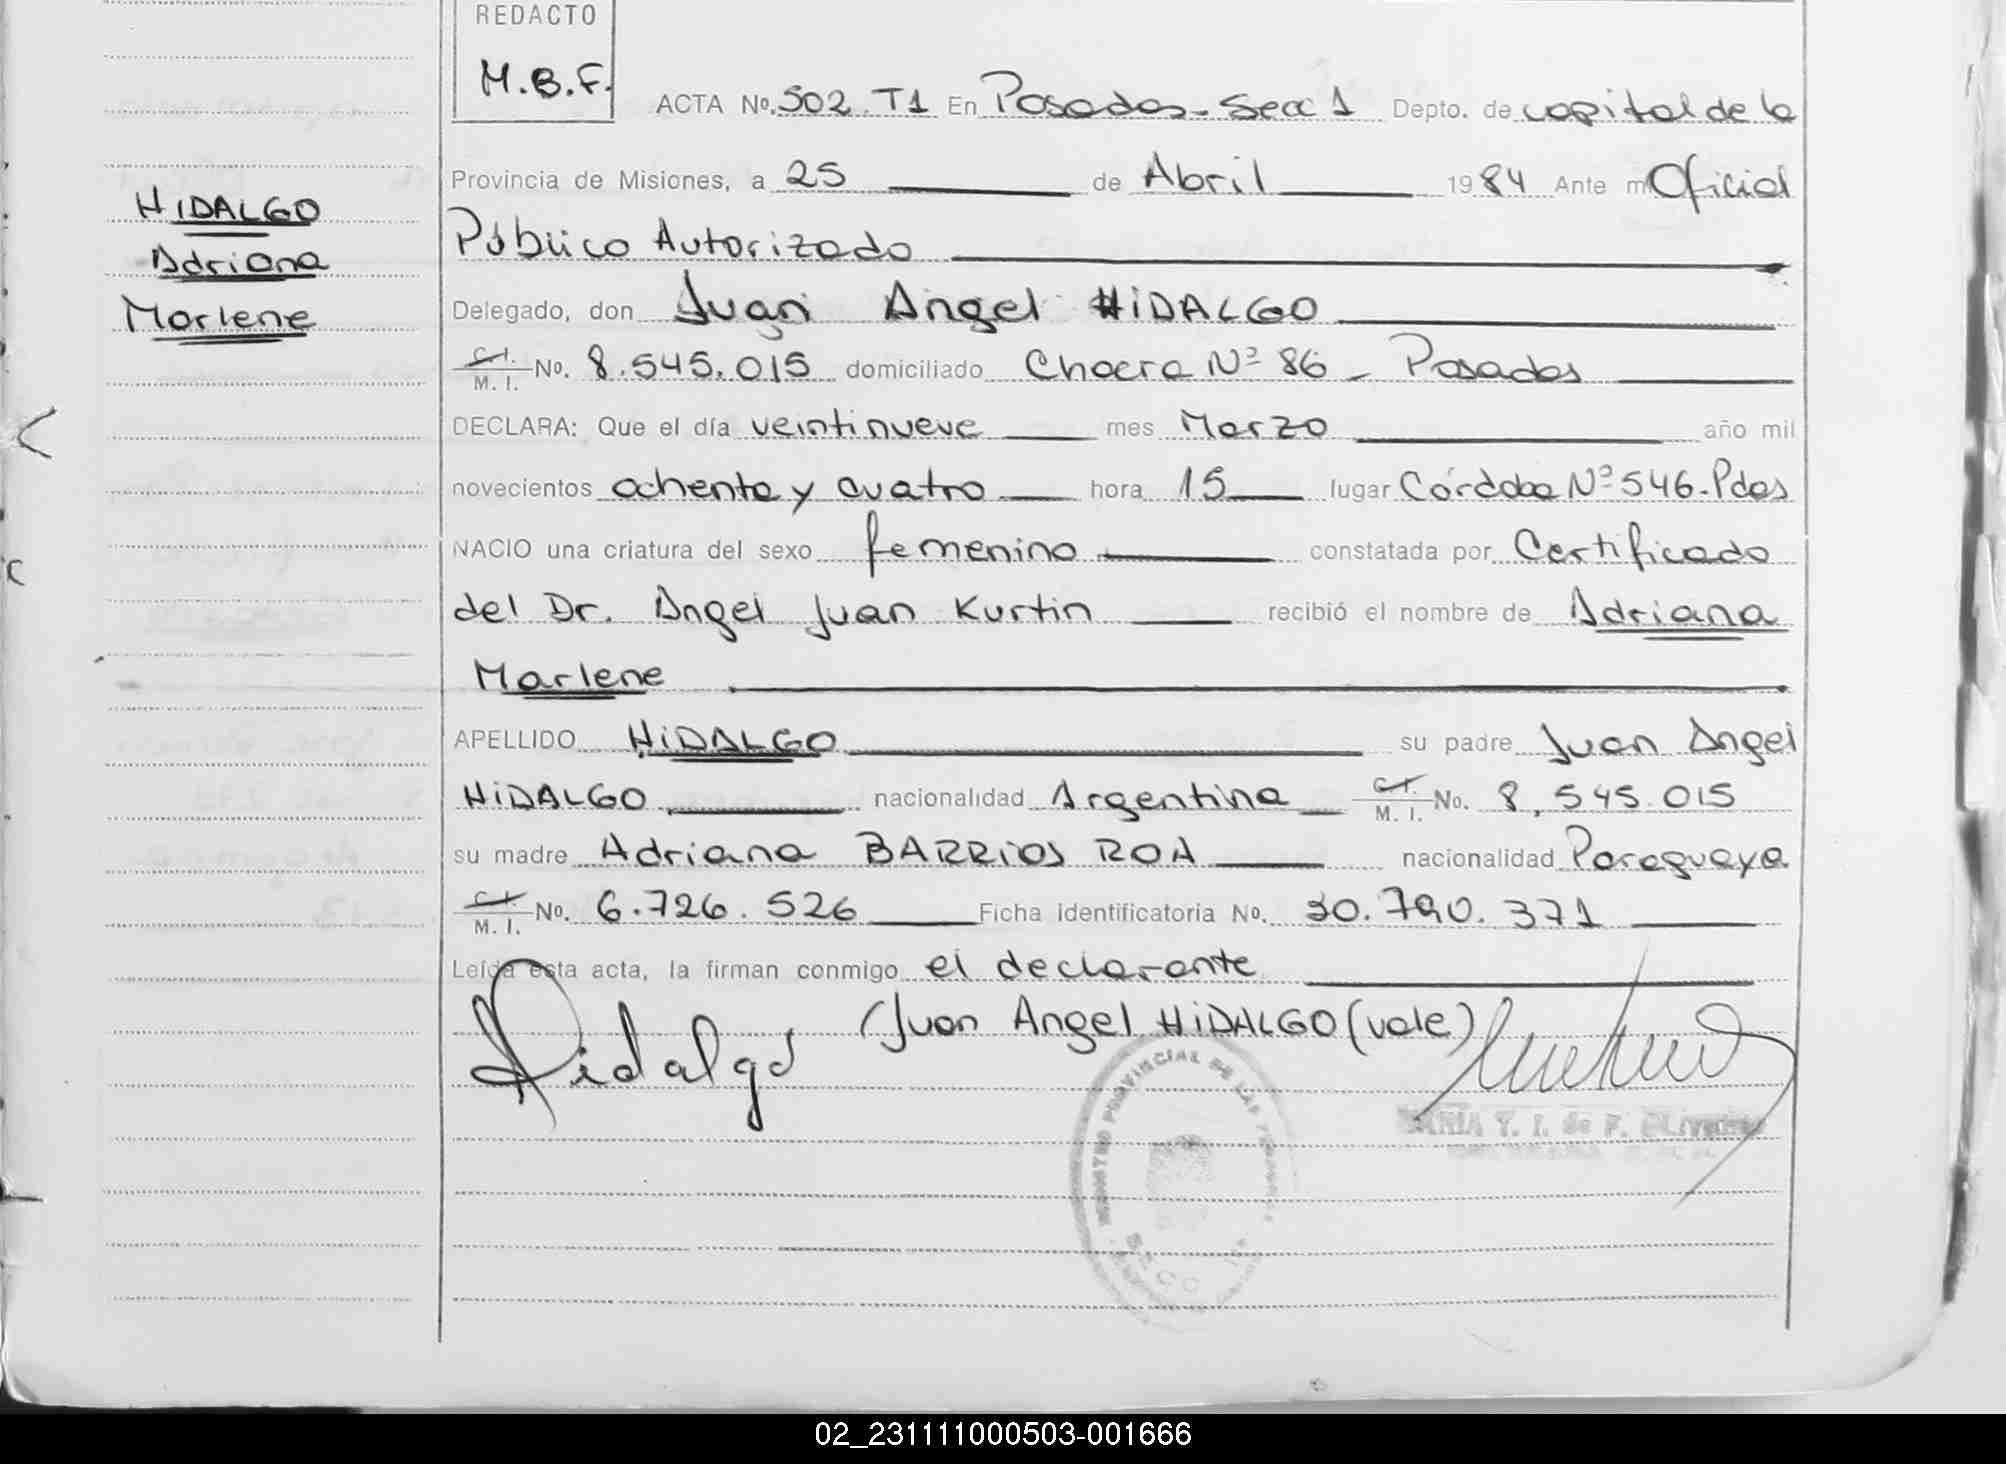 REDACTO
M.B.F.
ACTA No. 502 T1 En Posadas - Secc 1 Depto. de capital de la
Provincia de Misiones, a 25 de Abril 1984 Ante mí Oficial
Público Autorizado
Delegado, don Juan Angel HIDALGO
C.I. M. I. No. 8.545.015 domiciliado Chacra Nº 86 - Posadas
DECLARA: Que el día veintinueve mes Marzo año mil
novecientos ochenta y cuatro hora 15 lugar Córdoba Nº 546 - Pdas
NACIO una criatura del sexo femenino constatada por Certificado
del Dr. Angel Juan Kurtin recibió el nombre de Adriana
Marlene
APELLIDO HIDALGO su padre Juan Angel
HIDALGO nacionalidad Argentina C.I. M. I. No. 8.545.015
su madre Adriana BARRIOS ROA nacionalidad Paraguaya
C.I. M. I. No. 6.726.526 Ficha identificatoria No. 30.790.371
Leída esta acta, la firman conmigo el declarante
(Juan Angel HIDALGO (vale)
Hidalgo
HIDALGO
Adriana
Marlene
REGISTRO PROVINCIAL DE LAS PERSONAS
SECC 1a
MARIA T. I. de F. OLIVEIRA
02_231111000503-001666